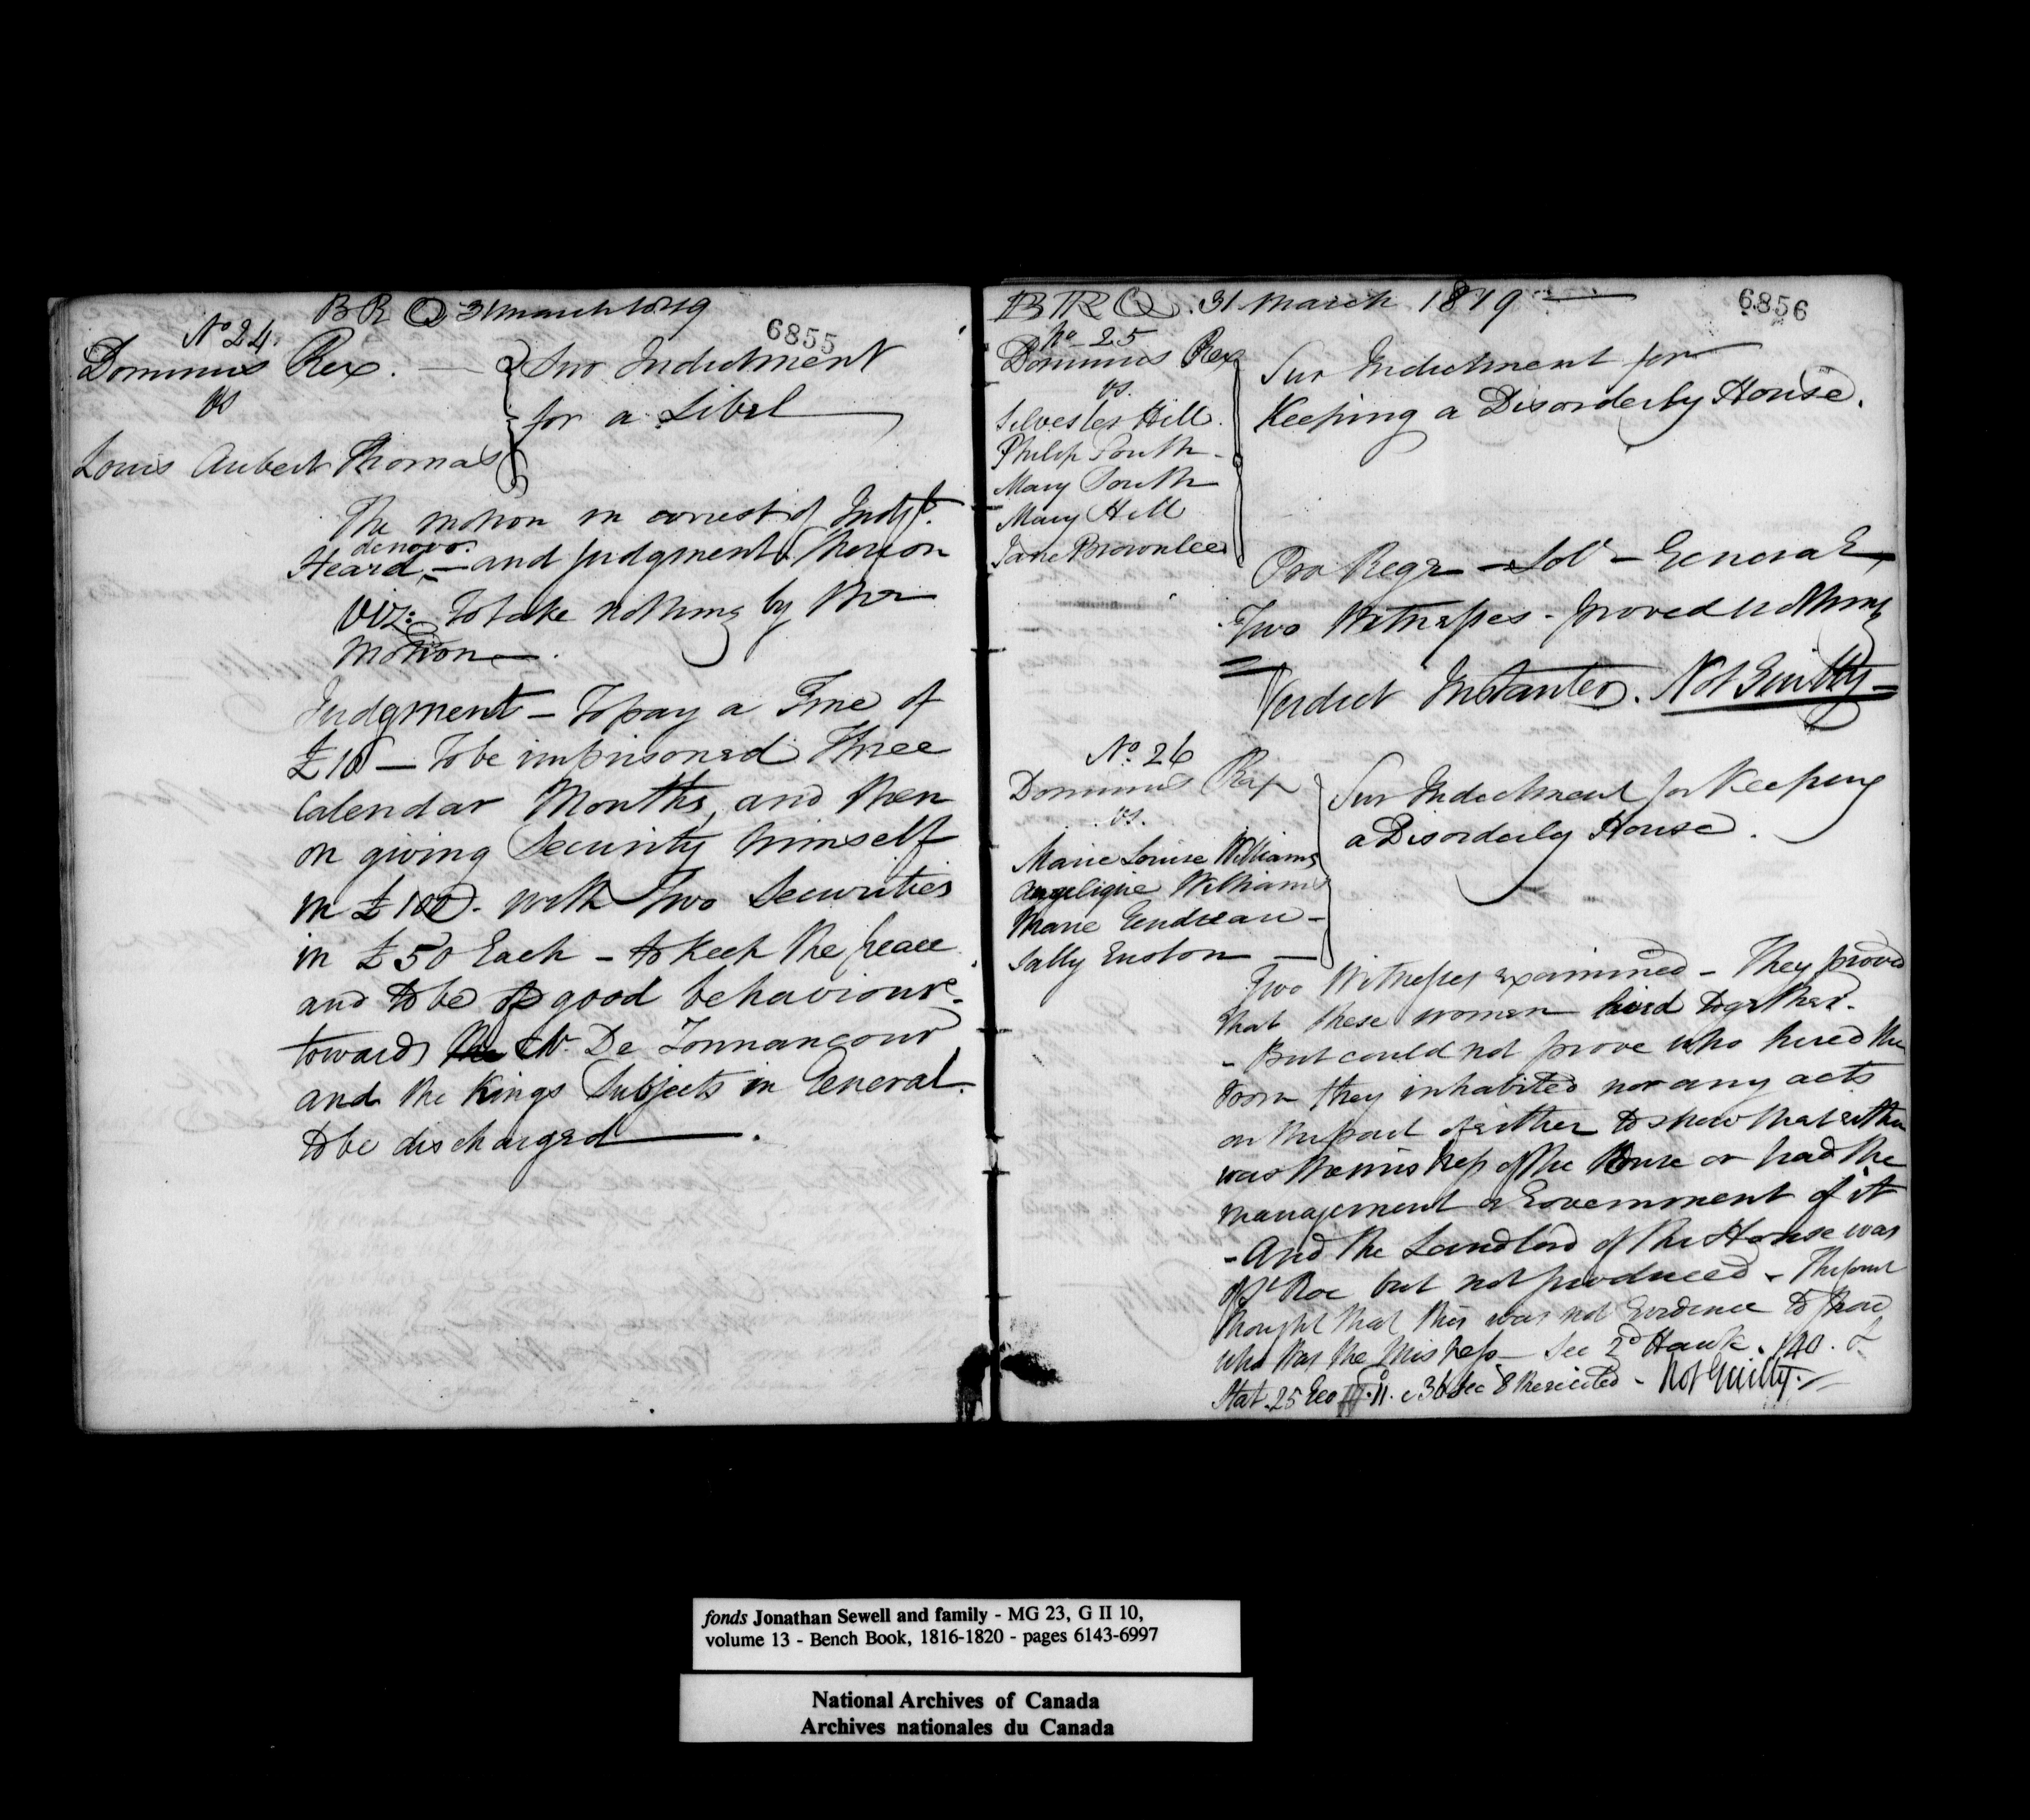 B R Q 31 March 1819
6855
No 24.
Dominus Rex.
vs
Louis Aubert Thomas
Sur Indictment
for a Libel
The motion in arrest of Judgt.
Heard denovo. — and judgment thereon
viz: To take nothing by their
Motion —.
Judgment — To pay a Fine of
£10 — To be imprisoned Three
Calendar Months, and then
on giving Security himself
in £100. with Two Securities
in £50 Each — to keep the peace
and to be of good behaviour
towards the Mr. De Tonnancour
and the Kings Subjects in General.
to be discharged —.
B R Q. 31 March 1819 —
6856
No 25
Dominus Rex
vs.
Silvester Hill.
Philip South —
Mary South
Mary Hill
Jane Brownlee
Sur Indictment for
Keeping a Disorderly House.
Pro Rege — Solr — General
Two Witnesses - proved nothing
Verdict Instanter. Not Guilty —
No. 26
Dominus Rex
vs.
Marie Louise Williams
Angelique Williams
Marie Gendreau —
Sally Enston —
Sur Indictment for Keeping
a Disorderly House.
Two Witnesses examined — They proved
that these women lived together.
- But could not prove who hired the
room they inhabited nor any acts
on the part of either to shew that either
was the mistress of the House or had the
management or Government of it
- And the Landlord of the House was
of St Roc but not produced — The court
thought that this was not Evidence to prove
who was the Mistress — See 2d Hawk. 140. &
Stat. 25 Geo II. c 36 sec 8 — Not Guilty. —
fonds Jonathan Sewell and family - MG 23, G II 10,
volume 13 - Bench Book, 1816-1820 - pages 6143-6997
National Archives of Canada
Archives nationales du Canada